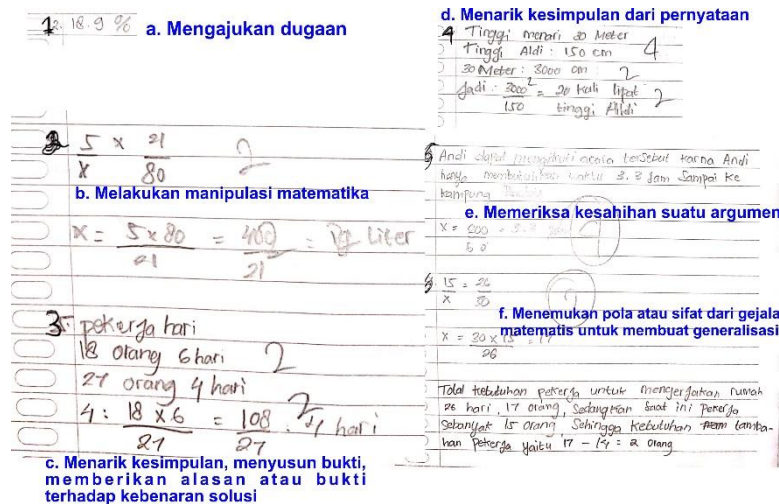 1 2. 18.9 %
a. Mengajukan dugaan
5 x 21
x 80
2
b. Melakukan manipulasi matematika
x = 5 x 80 = 400 = Liter
21 21
3. pekerja hari
18 orang 6 hari 2
27 orang 4 hari
4 : 18 x 6 = 108 . 4 hari
27 27
2
c. Menarik kesimpulan, menyusun bukti,
memberikan alasan atau bukti
terhadap kebenaran solusi
d. Menarik kesimpulan dari pernyataan
4 Tinggi menari 30 Meter
Tinggi Aldi : 150 cm 4
30 Meter : 3000 cm 2
Jadi : 3000 = 20 kali lipat 2
150 tinggi Aldi
5 Andi dapat mengikuti acara tersebut karna Andi
hanya membutuhkan waktu 3.3 Jam Sampai ke
kampung
e. Memeriksa kesahihan suatu argumen
x = 200 = 3.3
60
4
15 = 26
x 30
f. Menemukan pola atau sifat dari gejala
matematis untuk membuat generalisasi
x = 30 x 15 = 17
26
Total kebutuhan pekerja untuk mengerjakan rumah
26 hari, 17 orang, Sedangkan Saat ini Pekerja
Sebanyak 15 orang. Sehingga kebutuhan tamba-
han Pekerja Yaitu 17 - 15 = 2 orang